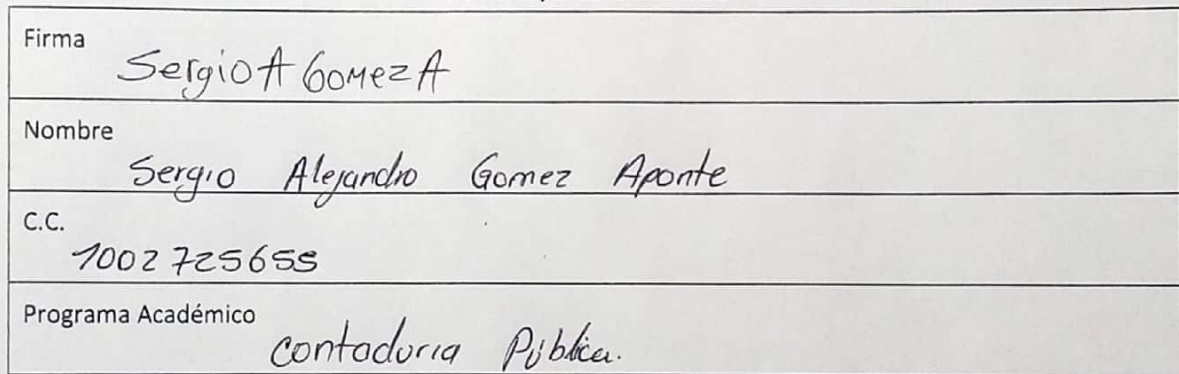 Firma
Sergio A Gomez A
Nombre
Sergio Alejandro Gomez Aponte
C.C.
1002725655
Programa Académico
contaduria Pública.